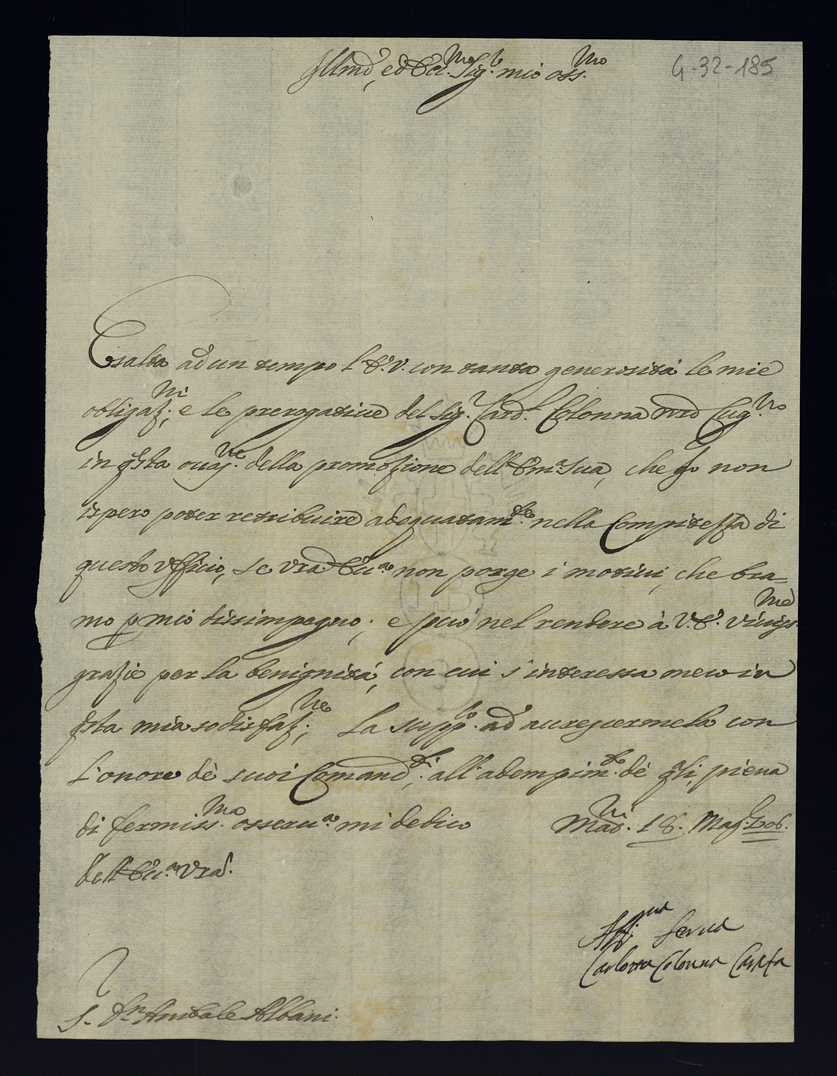 Illmo, ed Ecc.mo Sig.r mio oss.mo
G-32-185
Esalta ad un tempo l'E.V. con tanta generosità le mie
obligaz.ni, e le prerogative del Sig.r Card.l Colonna mio Cug.no
in q̃sta occ.ne della promozione dell'Em.a Sua, che Io non
ispero poter retribuire adeguatam.te nella Compitezza di
questo Ufficio, se vra Ecc.a non porge i motivi, che bra=
mo p mio dissimpegno; e p̃ciò nel rendere à V.E. viviss.me
grazie per la benignità, con cui s'interessa meco in
q̃sta mia sodisfaz.ne, La supp.co ad accrescermela con
l'onore dè suoi Comand.ti, all'adempim.to dè q̃li, piena
di fermiss.ma osserv.a mi dedico Mad. 18. Mag.
dell'Ecc.a Vra.
Aff.ma Serva
Carlotta Colonna Carafa
S. D.n Anibale Albani.